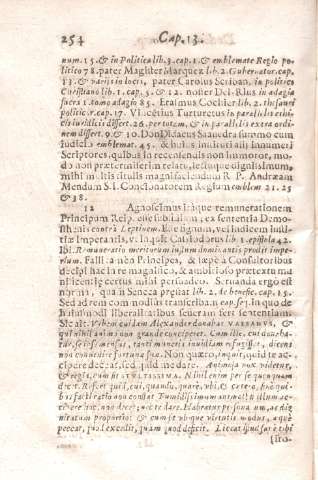 254 Cap. 13.
num. 15. & in Politica lib. 3. cap. 1. & emblemate Regio po-
litico 78. pater Magister Marquez lib. 2. Gubernator. cap.
13. & pater Carolus Scriban. in politico
Christiano lib. 1. cap. 12. & noster Del-Rius in adagia
sacra 1. tomo adagio 85. Erasmus Cochier lib. 2. thesauri
politic r. cap. 17. Turturetus in parallelis ethi-
cis iuridicis dissert. 26. per totam, & in parallelis extra ordi-
nem dissert. 9. & 10. Don Didacus Saauedra summo cum
iudicio emblemat. 45. & huius instituti alij innumeri
Scriptores, quibus in recensendis non immoror, mo-
do non prætermiserim relatu, letuque dignissimum,
mihi multis titulis magnifaciendum R. P. Andræam
Mendum S. I. Concionatorem Regium emblem 21. 25
& 38.
12 Agnoscimus itaque remunerationem
Principum Reip. esse subsidium, ex sententia Demo-
sthenis contrà Leptinem. Eoc signum, vel indicem iusti-
tiæ Imperantis, vt inquit Cassiodorus lib 1. epistola 42.
Ibi. Remuneratio meritorum iustum dominantis prodit impe-
rium. Falli tamen Principes, & sæpè à Consultoribus
decipi hac in re magnifico, & ambitioso prætextu mu-
nificentiæ certius mihi persuadeo. Seruanda ergo est
norma, quam Seneca præfigit lib. 2. de benefic. cap. 15.
Sed ad rem eum modus transcribam cap. 16. in quo de
huiusmodi liberalitatibus seueram fert sententiam.
Sic ait. Vrbem cuidam Alexander donabat VESSANVS, &
qui nihil animo non grande conciperet. Cum ille, cui donaba-
tur, se ipse mensus, tanti muneris inuidiam refugisset, dicens
non conuenire fortunæ suæ. Non quæro, inquit, quid te ac-
cipere deceat, sed quid me dare. Animosa vox videtur,
& regia, cum sit STVLTISSIMA. Nihil enim per se quenquam
decet. Refert quid, cui, quando, quare, vbi, & cætera, sine qui-
bus facti ratio non constat Tumidissimum animal: si illum ac-
cipere hoc non decet, nec te dare. Habeatur personarum, ac dig-
nitatum proportio: & cum sit vbique virtutis modus, æquè
peccat, quod excedit, quàm quod deficit. Liceat istud sanè tibi
(ito.